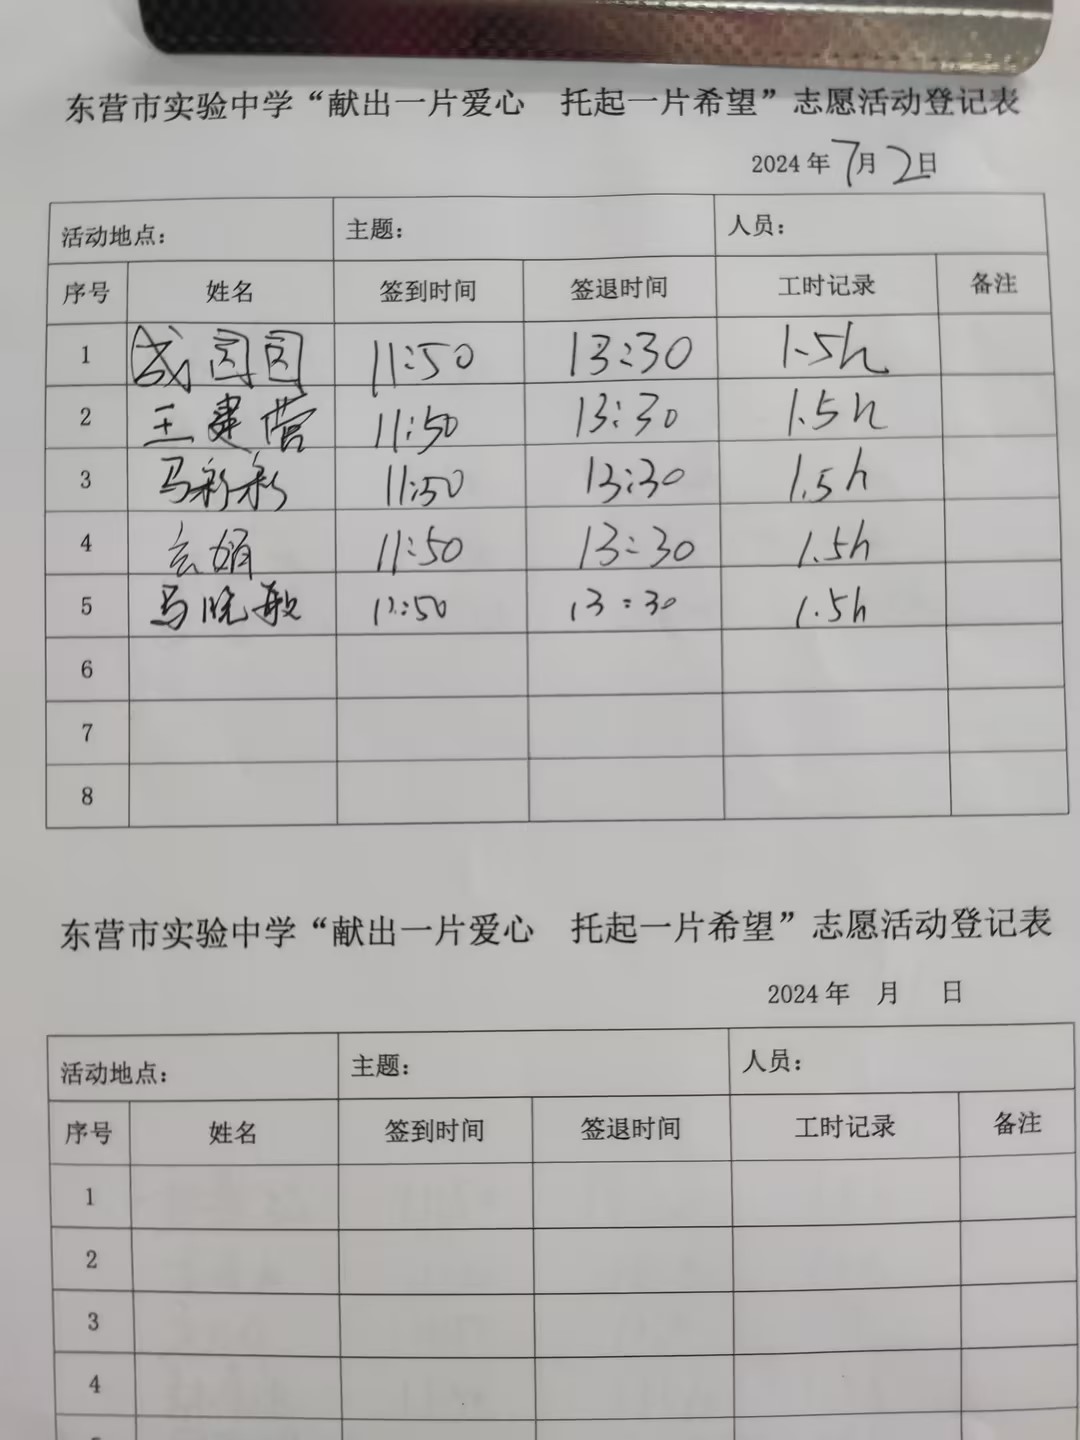 东营市实验中学“献出一片爱心 托起一片希望”志愿活动登记表
2024年7月2日
活动地点: 主题: 人员:
序号 姓名 签到时间 签退时间 工时记录 备注
1 成园园 11:50 13:30 1.5h
2 王建营 11:50 13:30 1.5h
3 马彩彩 11:50 13:30 1.5h
4 玄娟 11:50 13:30 1.5h
5 马晓敏 11:50 13:30 1.5h
6
7
8
东营市实验中学“献出一片爱心 托起一片希望”志愿活动登记表
2024年 月 日
活动地点: 主题: 人员:
序号 姓名 签到时间 签退时间 工时记录 备注
1
2
3
4